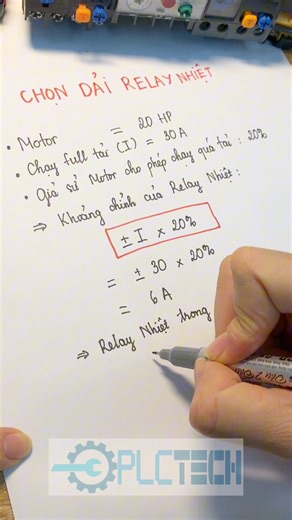 CHỌN DẢI RELAY NHIỆT
• Motor = 20 HP
• Chạy full tải (I) = 30 A
• Giả sử Motor cho phép chạy quá tải : 20%
⇒ Khoảng chỉnh của Relay Nhiệt :
± I × 20%
= ± 30 × 20%
= 6 A
⇒ Relay Nhiệt trong
PLCTECH